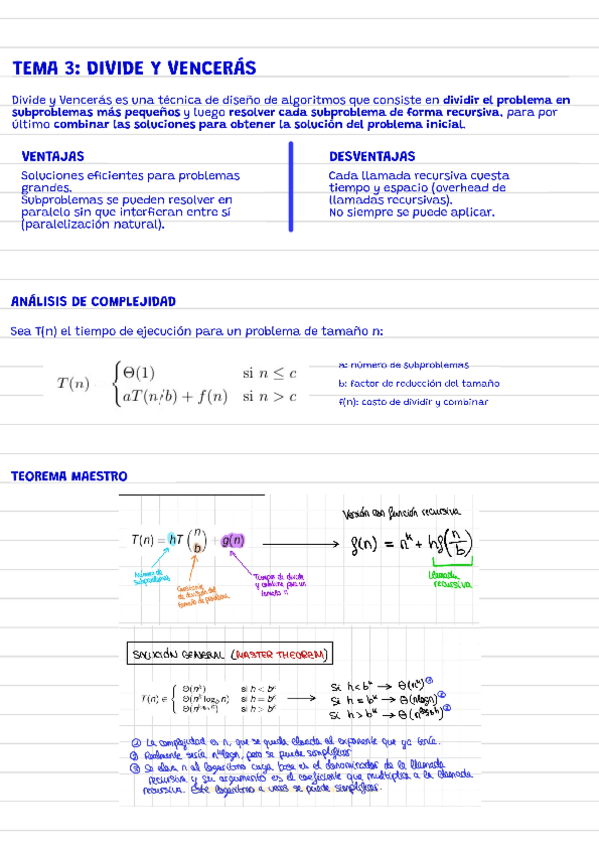 TEMA 3: DIVIDE Y VENCERÁS
Divide y Vencerás es una técnica de diseño de algoritmos que consiste en dividir el problema en
subproblemas más pequeños y luego resolver cada subproblema de forma recursiva, para por
último combinar las soluciones para obtener la solución del problema inicial.
VENTAJAS
Soluciones eficientes para problemas
grandes.
Subproblemas se pueden resolver en
paralelo sin que interfieran entre sí
(paralelización natural).
DESVENTAJAS
Cada llamada recursiva cuesta
tiempo y espacio (overhead de
llamadas recursivas).
No siempre se puede aplicar.
ANÁLISIS DE COMPLEJIDAD
Sea T(n) el tiempo de ejecución para un problema de tamaño n:
T(n) {Θ(1) si n ≤ c
aT(n/b) + f(n) si n > c
a: número de subproblemas
b: factor de reducción del tamaño
f(n): costo de dividir y combinar
TEOREMA MAESTRO
Versión con función recursiva
T(n) = hT(n/b) + g(n) → g(n) = n^k + hg(n/b)
Número de
subproblemas
de división del
tamaño de problema
Tiempo de dividir
y combinar para un
tamaño n
Llamada
recursiva
SOLUCIÓN GENERAL (MASTER THEOREM)
T(n) ∈ { Θ(n^k) si h < b^k
si h = b^k
si h > b^k
Si h < b^k → Θ(n^k) ①
Si h = b^k → Θ(nlogn) ②
Si h > b^k → Θ(n^log_b h) ③
① La complejidad es n, que se queda elevada al exponente que ya tenía.
② Realmente sería n^k logn, pero se puede simplificar
③ Se eleva n al logaritmo cuya base es el denominador de la llamada
recursiva y su argumento es el coeficiente que multiplica a la llamada
recursiva. Este logaritmo a veces se puede simplificar.